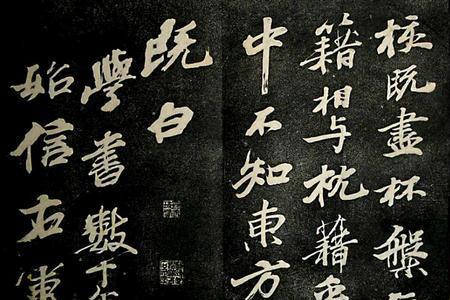 核既盡杯盤
籍相与枕籍
中不知東方
既白
學書數十
始信右軍